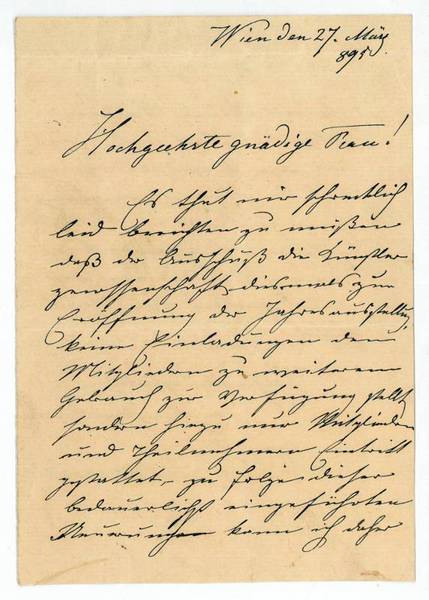 Wien den 27. März
895.
Hochgeehrte gnädige Frau!
Es thut mir schrecklich
leid berichten zu müßen
daß der Ausschuß die Künstler
genossenschaft diesmals zur
Eröffnung der Jahresausstellung
keine Einladungen den
Mitgliedern zu weiterem
Gebrauch zur Verfügung stellt
sondern hiezu nur Mitglieder
und Theilnehmern Eintritt
gestattet, zu folge dieser
bedauerlichst eingeführten
Neuerung kann ich daher